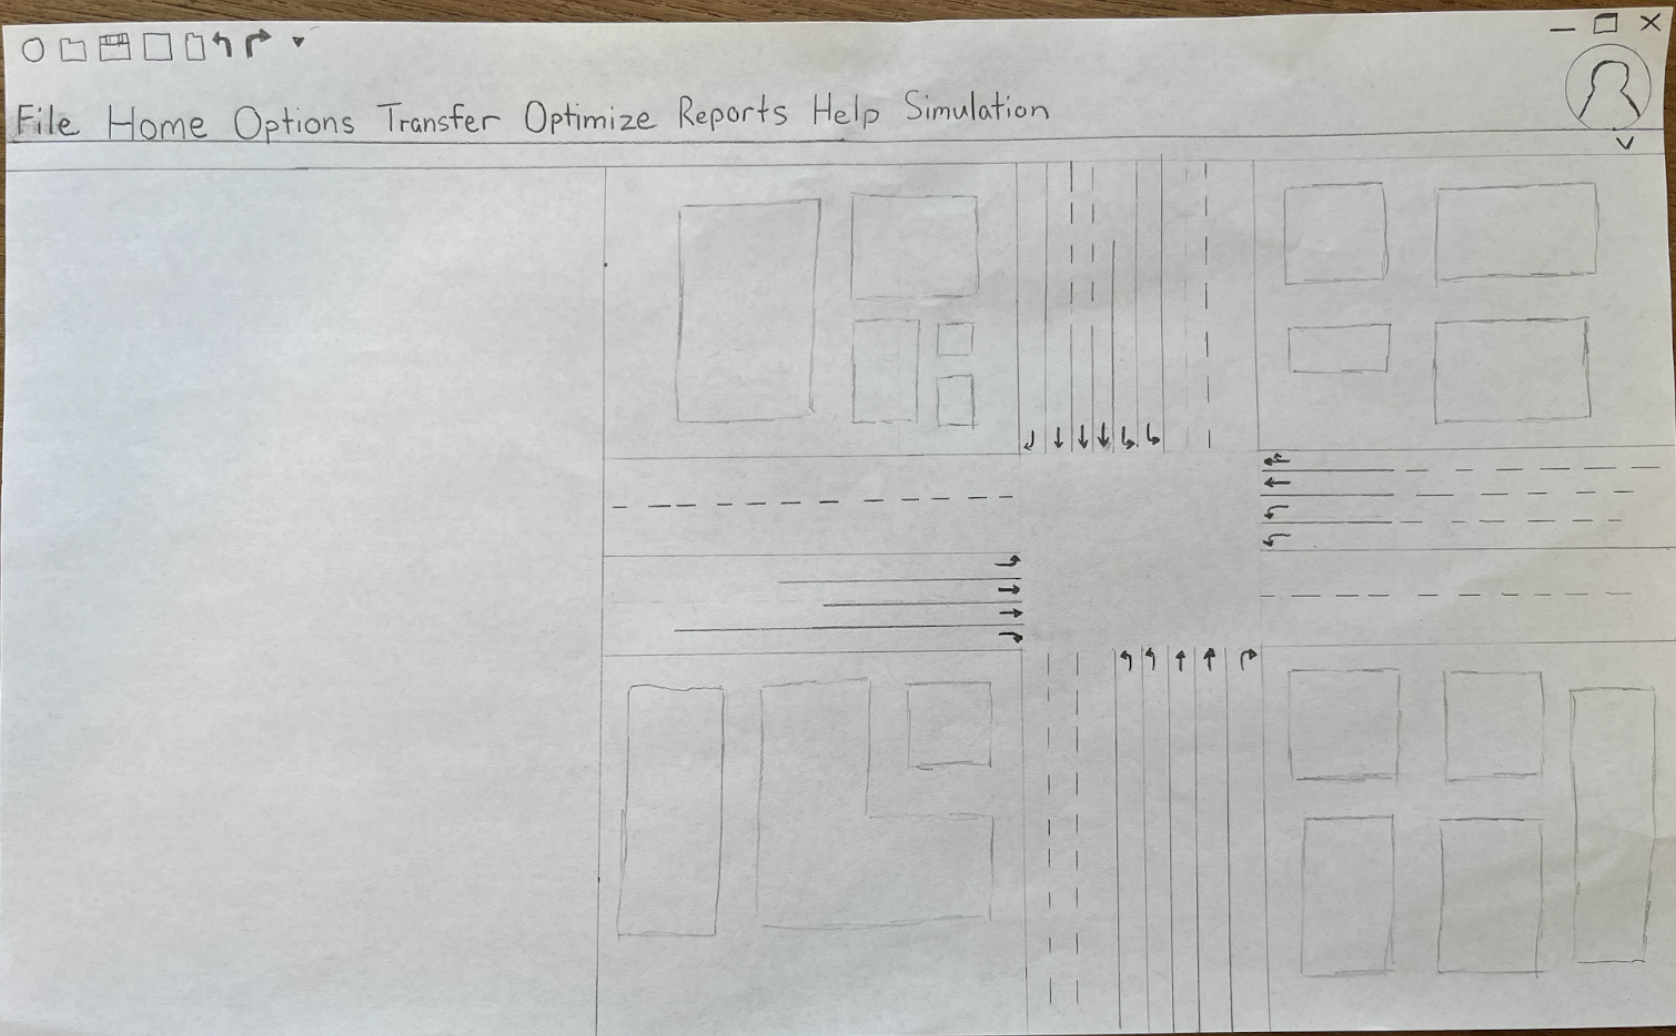 File Home Options Transfer Optimize Reports Help Simulation